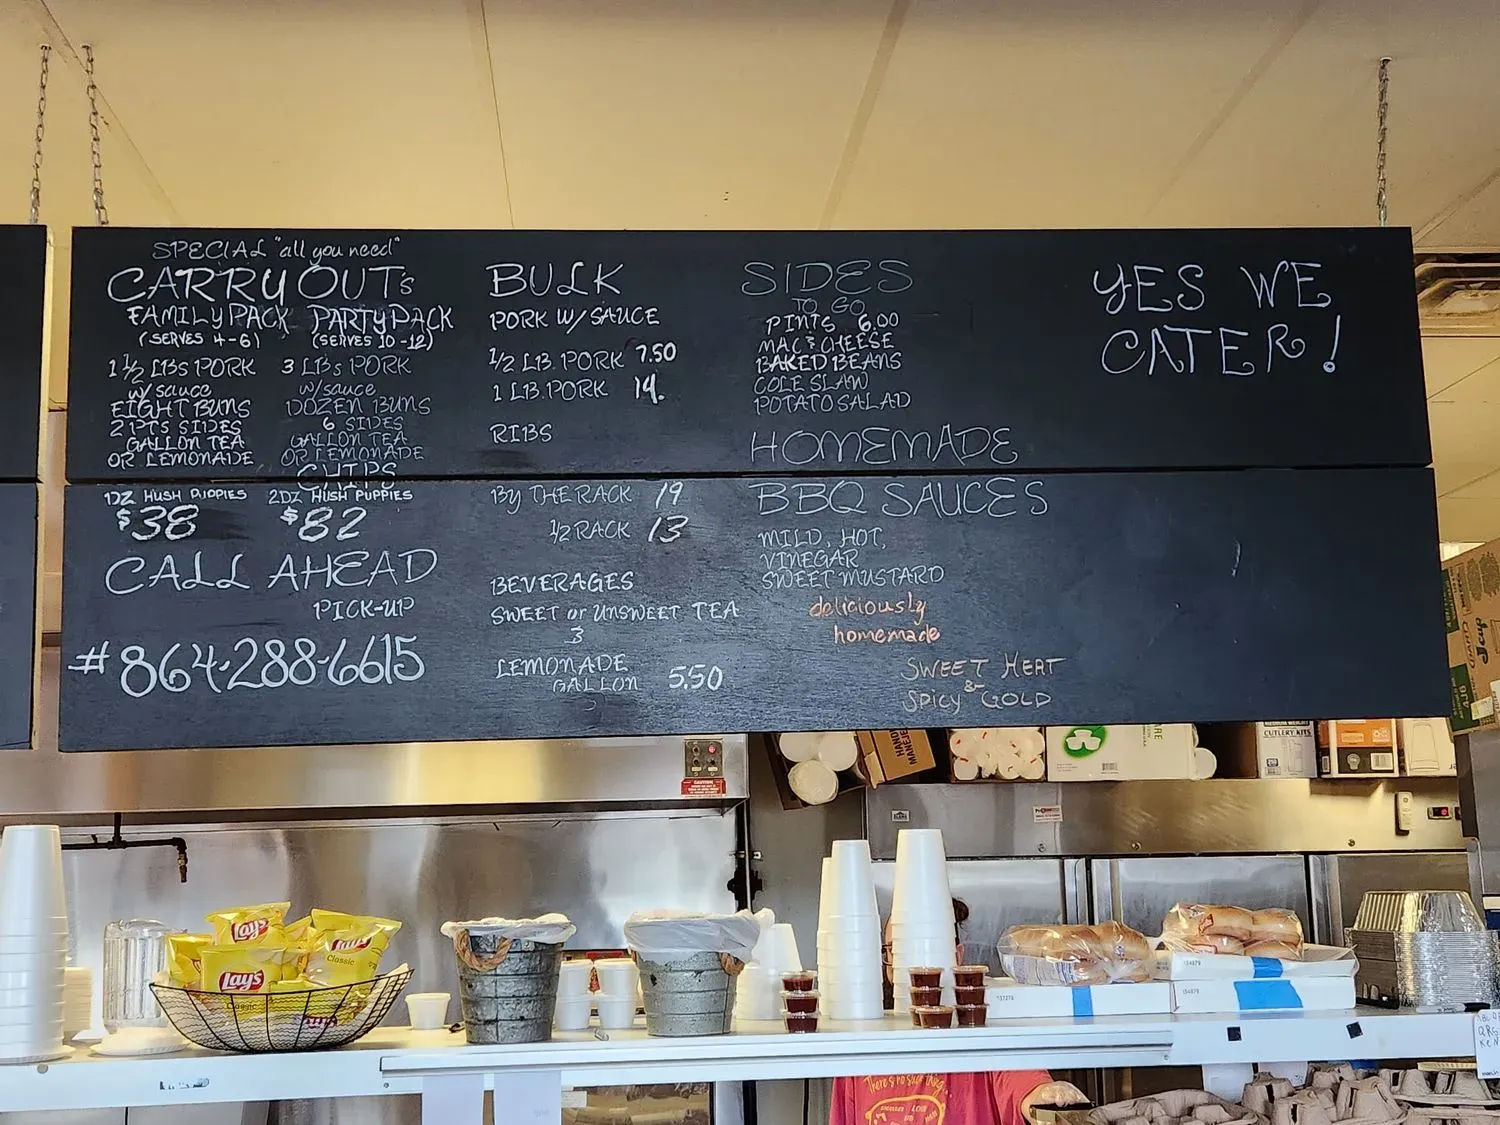 SPECIAL "all you need"
CARRY OUTs
FAMILY PACK
(SERVES 4-6)
1 1/2 LBS PORK
w/sauce
EIGHT BUNS
2 PTS SIDES
GALLON TEA
OR LEMONADE
1DZ HUSH PUPPIES
$38
PARTY PACK
(SERVES 10-12)
3 LBs PORK
w/sauce
DOZEN BUNS
6 SIDES
GALLON TEA
OR LEMONADE
CHIPS
2DZ HUSH PUPPIES
$82
CALL AHEAD
PICK-UP
#864-288-6615
BULK
PORK W/SAUCE
1/2 LB. PORK 7.50
1 LB. PORK 14.
RIBS
BY THE RACK 19
1/2 RACK 13
BEVERAGES
SWEET or UNSWEET TEA
3
LEMONADE
GALLON 5.50
SIDES
TO GO
PINTS 6.00
MAC & CHEESE
BAKED BEANS
COLE SLAW
POTATO SALAD
HOMEMADE
BBQ SAUCES
MILD, HOT,
VINEGAR
SWEET MUSTARD
deliciously
homemade
SWEET HEAT
&
SPICY GOLD
YES WE
CATER!
CUTLERY KITS
CAUTION
Lay's
Lay's
Lay's
Classic
Classic
There's no such thing...